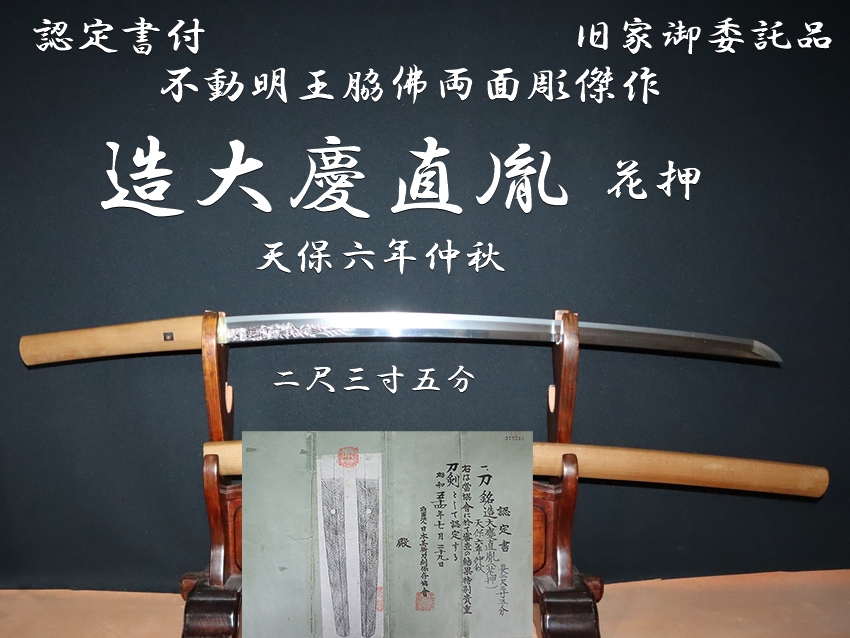 認定書付
旧家御委託品
不動明王脇佛両面彫傑作
造大慶直胤 花押
天保六年仲秋
二尺三寸五分
認定書
一、刀 銘 造大慶直胤(花押)
天保六年仲秋
長弐尺三寸五分
右は當協會に於て審査の結果特別貴重
刀剣として認定する
昭和五十四年七月二十九日
財團法人日本美術刀剣保存協會
殿